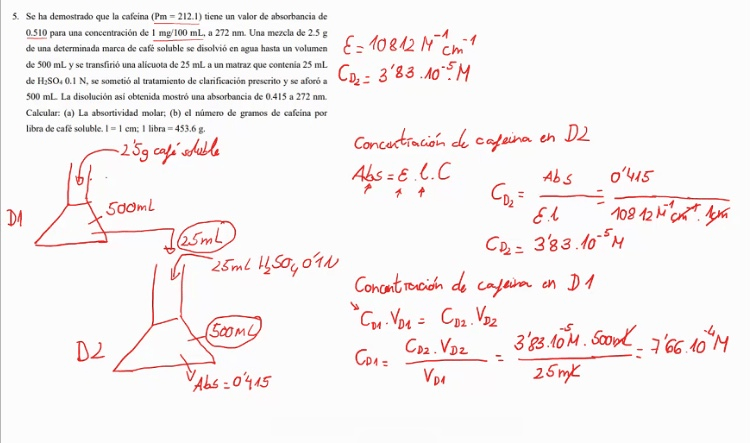 5. Se ha demostrado que la cafeína (Pm = 212.1) tiene un valor de absorbancia de
0.510 para una concentración de 1 mg/100 mL, a 272 nm. Una mezcla de 2.5 g
de una determinada marca de café soluble se disolvió en agua hasta un volumen
de 500 mL y se transfirió una alícuota de 25 mL a un matraz que contenía 25 mL
de H₂SO₄ 0.1 N, se sometió al tratamiento de clarificación prescrito y se aforó a
500 mL. La disolución así obtenida mostró una absorbancia de 0.415 a 272 nm.
Calcular: (a) La absortividad molar; (b) el número de gramos de cafeína por
libra de café soluble. l = 1 cm; 1 libra = 453.6 g.
2'5g café soluble
500mL
D1
25mL
25mL H₂SO₄ 0'1N
500mL
D2
Abs = 0'415
Ɛ = 10812 M⁻¹ cm⁻¹
C_D2 = 3'83.10⁻⁵ M
Concentración de cafeína en D2
Abs = Ɛ . l . C
C_D2 = Abs / Ɛ.l = 0'415 / 10812 M⁻¹ cm⁻¹ . 1cm
C_D2 = 3'83.10⁻⁵ M
Concentración de cafeína en D1
C_D1 . V_D1 = C_D2 . V_D2
C_D1 = C_D2 . V_D2 / V_D1 = 3'83.10⁻⁵ M . 500mL / 25mL = 7'66.10⁻⁴ M